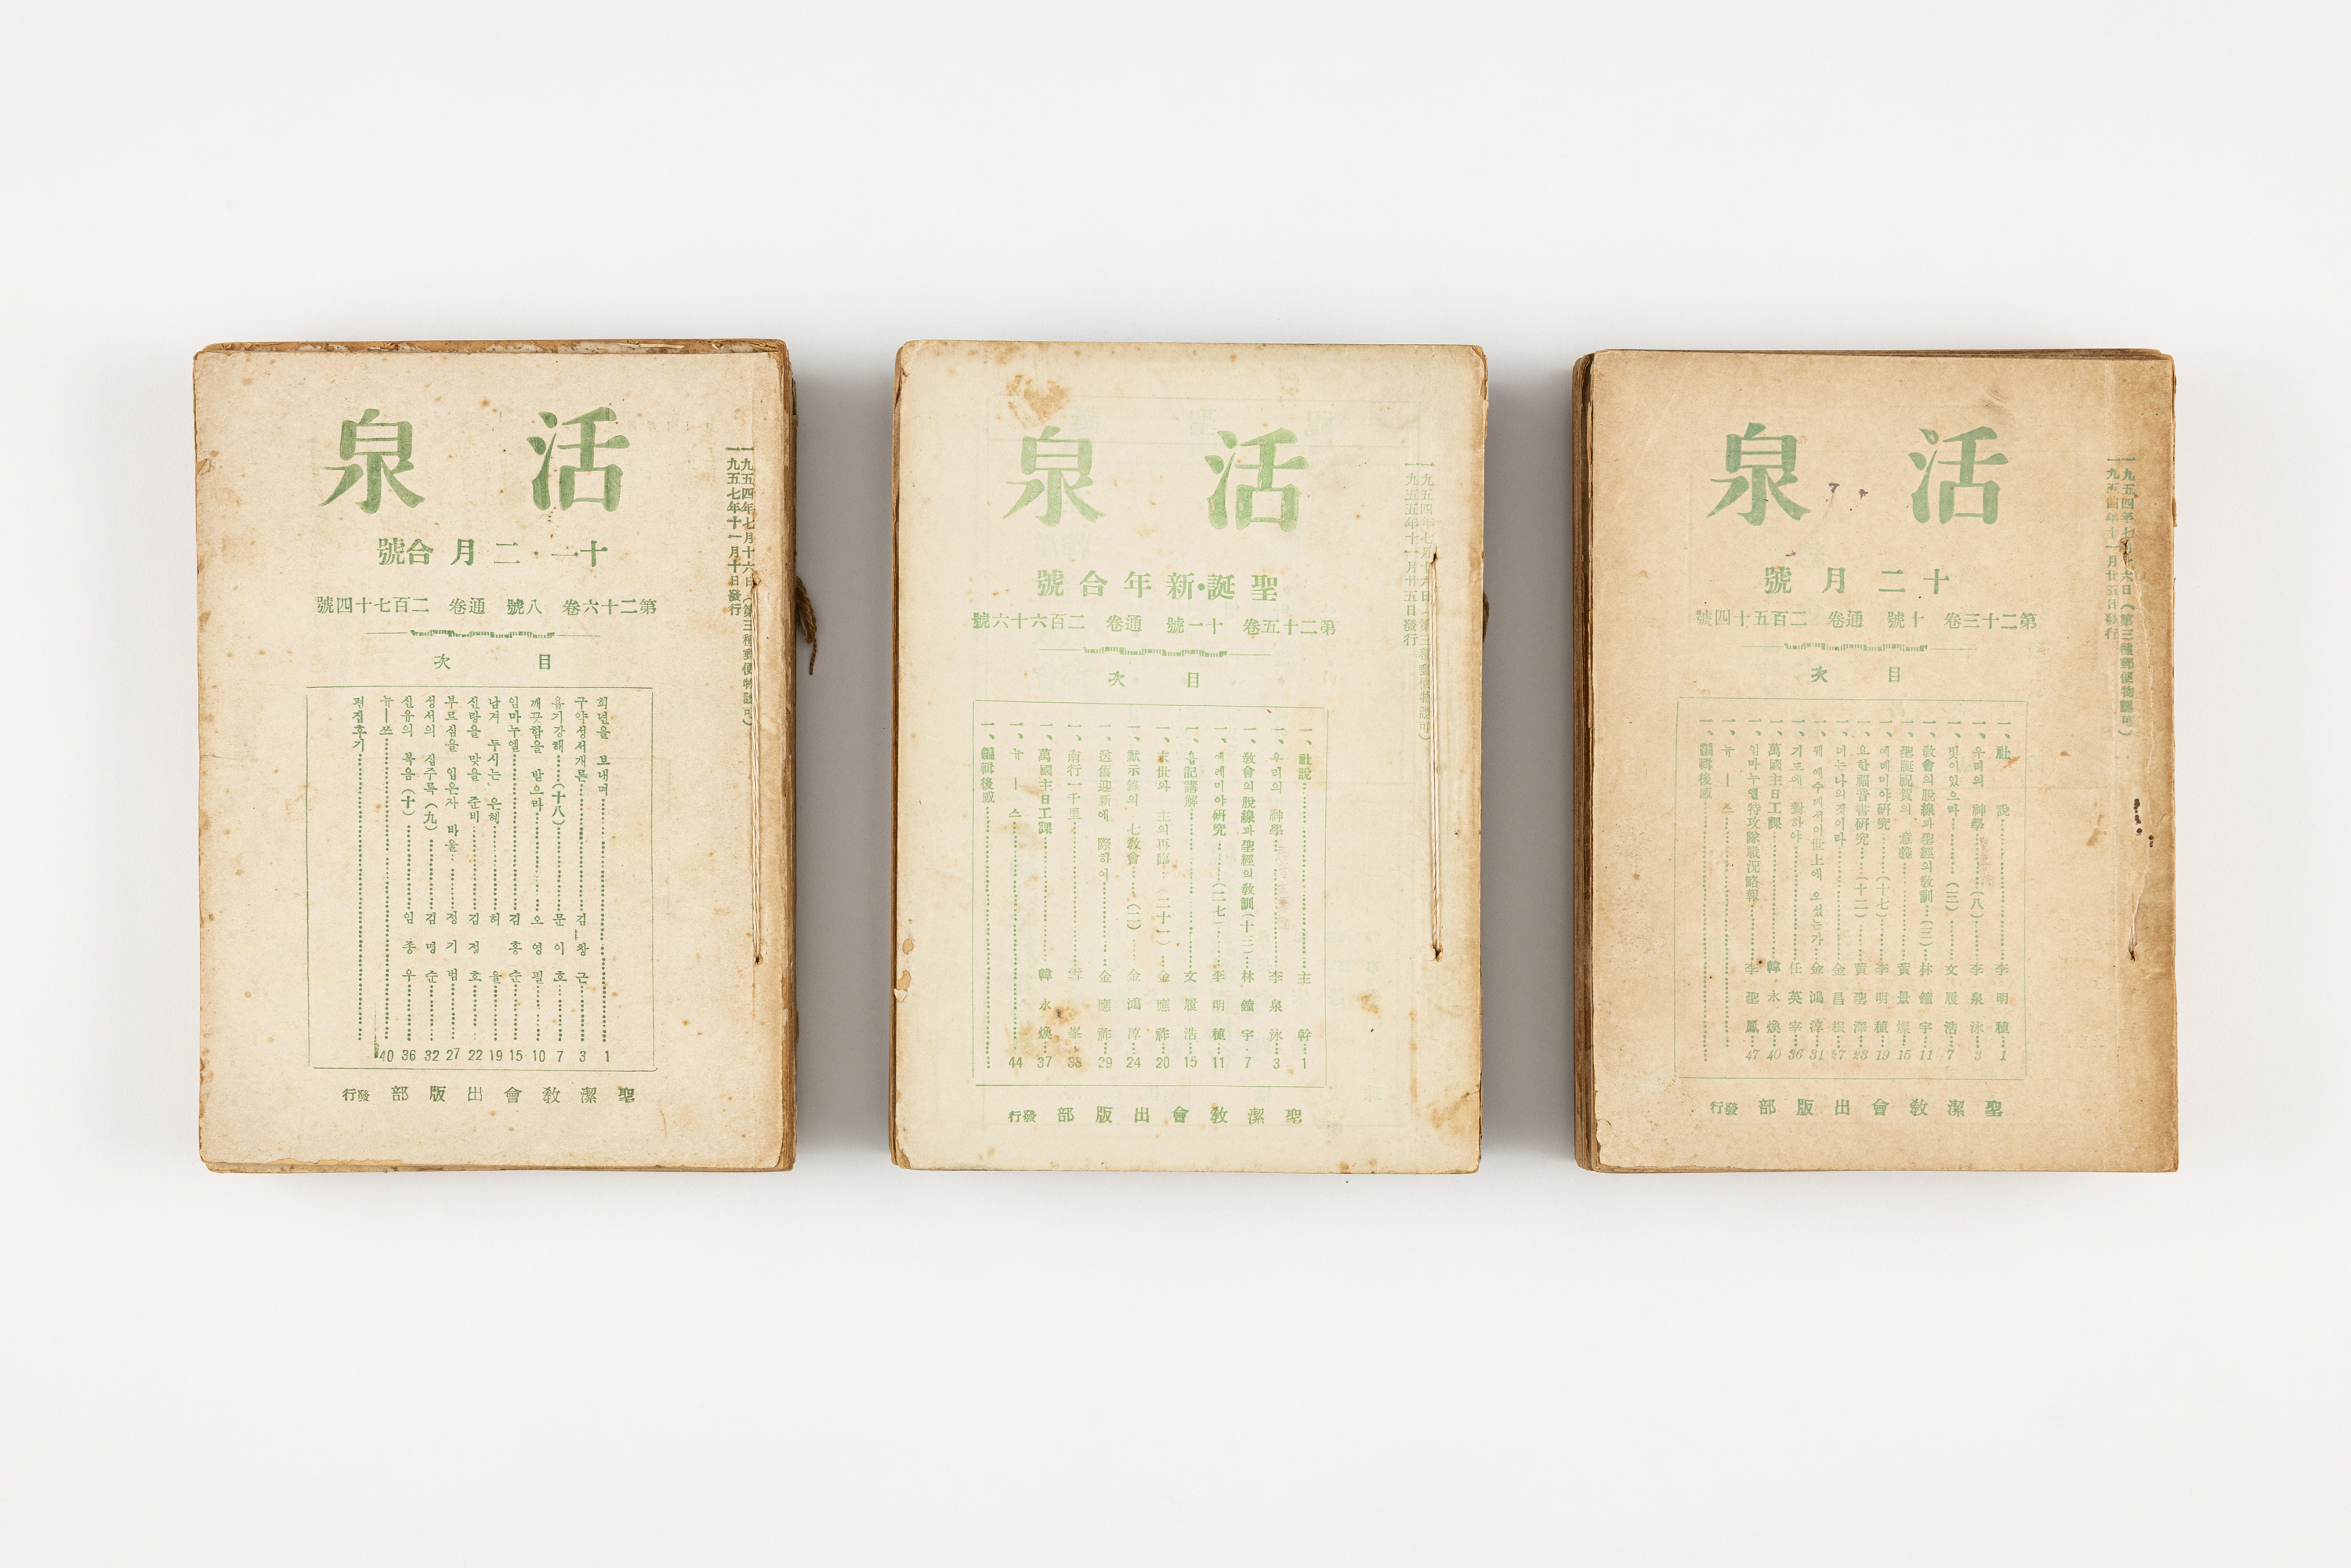 活泉
十一·二月合號
第二十六卷 八號 通卷 二百七十四號
目次
희년을 보내며 1
구약성서개론 김창근 3
욥기강해(十八) 문이호 7
깨끗함을 받으라 오영필 10
임마누엘 김홍순 15
남겨 두시는 은혜 허율 19
신랑을 맞을 준비 김정호 22
부르심을 입은자 바울 정기범 27
성서의 십주록(九) 김명순 32
신유의 복음(十) 임종우 36
뉴—쓰 40
편집후기
聖潔敎會出版部發行
一九五四年七月十六日(第三種郵便物認可)
一九五七年十一月十日發行
活泉
聖誕·新年合號
第二十五卷 十一號 通卷 二百六十六號
目次
一、社說 主幹 1
一、우리의 神學 李泉泳 3
一、敎會의 脫線과 聖經의 敎訓(十三) 林鐘宇 7
一、예레미야硏究(二七) 李明稙 11
一、욥記講解 文履浩 15
一、末世와 主의再臨(二十一) 金應祚 20
一、默示錄의 七敎會(二) 金鴻淳 24
一、送舊迎新에 際하여 金應祚 29
一、南行一千里 雪峯 33
一、萬國主日工課 韓永煥 37
一、뉴—스 44
一、編輯後感
聖潔敎會出版部發行
一九五四年七月十六日(第三種郵便物認可)
一九五五年十一月廿五日發行
活泉
十二月號
第二十三卷 十號 通卷 二百五十四號
目次
一、社說 李明稙 1
一、우리의 神學(八) 李泉泳 3
一、빛이있으라(三) 文履浩 7
一、敎會의脫線과聖經의敎訓(三) 林鐘宇 11
一、聖誕祝賀의 意義 黃景燦 15
一、예레미야硏究(十七) 李明稙 19
一、요한福音書硏究(十二) 黃聖澤 23
一、너는나의것이라 金昌根 27
一、웨 예수께서이世上에 오셨는가 金鴻淳 31
一、기드에 對하야 任英宰 36
一、萬國主日工課 韓永煥 40
一、임마누엘特攻隊戰況略報 李聖鳳 47
一、뉴—스
一、編輯後感
聖潔敎會出版部發行
一九五四年七月十六日(第三種郵便物認可)
一九五四年十一月廿五日發行